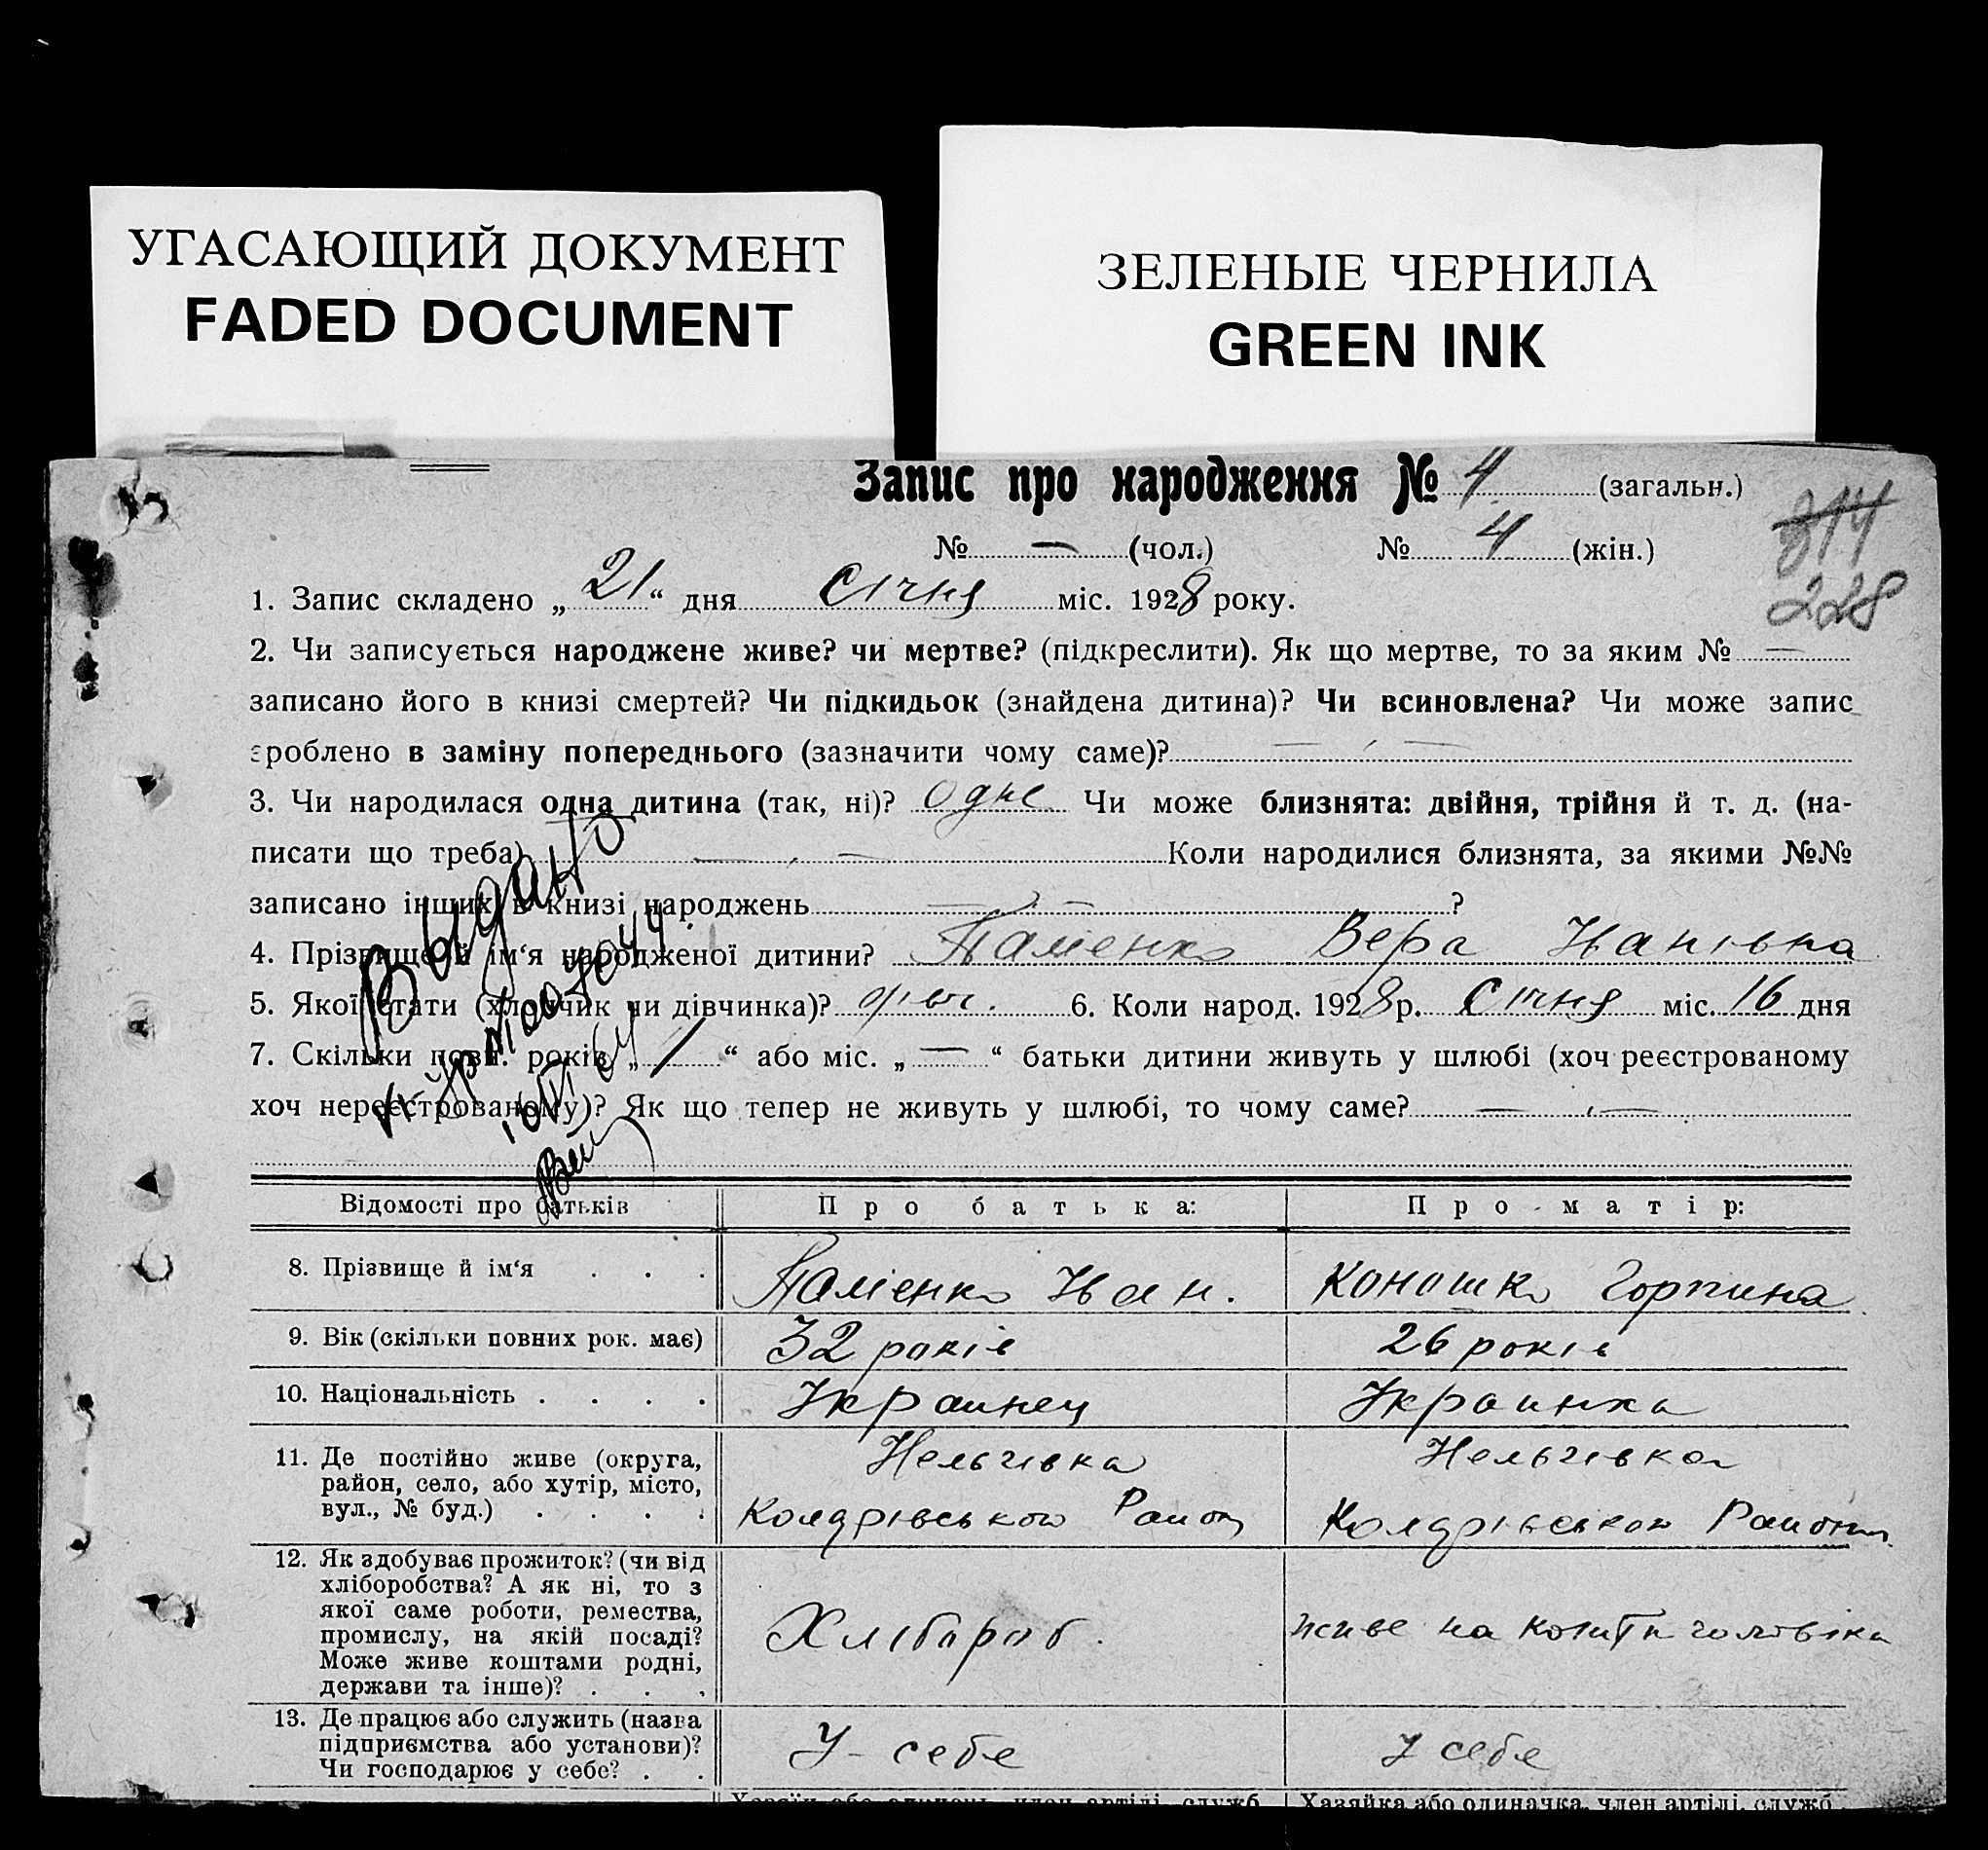 УГАСАЮЩИЙ ДОКУМЕНТ
FADED DOCUMENT
ЗЕЛЕНЫЕ ЧЕРНИЛА
GREEN INK
Запис про народження № 4 (загальн.)
№ — (чол.) № 4 (жін.)
314
228
1. Запис складено „21“ дня Січня міс. 1928 року.
2. Чи записується народжене живе? чи мертве? (підкреслити). Як що мертве, то за яким № —
записано його в книзі смертей? Чи підкидьок (знайдена дитина)? Чи всиновлена? Чи може запис
зроблено в заміну попереднього (зазначити чому саме)? —
3. Чи народилася одна дитина (так, ні)? одне Чи може близнята: двійня, трійня й т. д. (на-
писати що треба) — Коли народилися близнята, за якими №№
записано інших в книзі народжень — ?
4. Прізвище й ім‘я народженої дитини? Вера Иванівна
5. Якої стати (хлопчик чи дівчинка)? дівч. 6. Коли народ. 1928 р. Січня міс. 16 дня
7. Скільки повн. років „1“ або міс. „—“ батьки дитини живуть у шлюбі (хоч реєстрованому
хоч нереєстрованому)? Як що тепер не живуть у шлюбі, то чому саме? —
Выдано
Відомості про батьків Про батька: Про матір:
8. Прізвище й ім‘я Иван. Горпина
9. Вік (скільки повних рок. має) 32 років 26 років
10. Національність Украинец Украинка
11. Де постійно живе (округа, Нельгівка Нельгівка
район, село, або хутір, місто,
вул., № буд.)
12. Як здобуває прожиток? (чи від
хліборобства? А як ні, то з
якої саме роботи, ремества, Хлібороб. живе на кошти чоловіка
промислу, на якій посаді?
Може живе коштами родні,
держави та інше)?
13. Де працює або служить (назва
підприємства або установи)? У себе у себе
Чи господарює у себе?
Хазяїн або одинець, член артілі, служб. Хазяйка або одиначка, член артілі, служб.